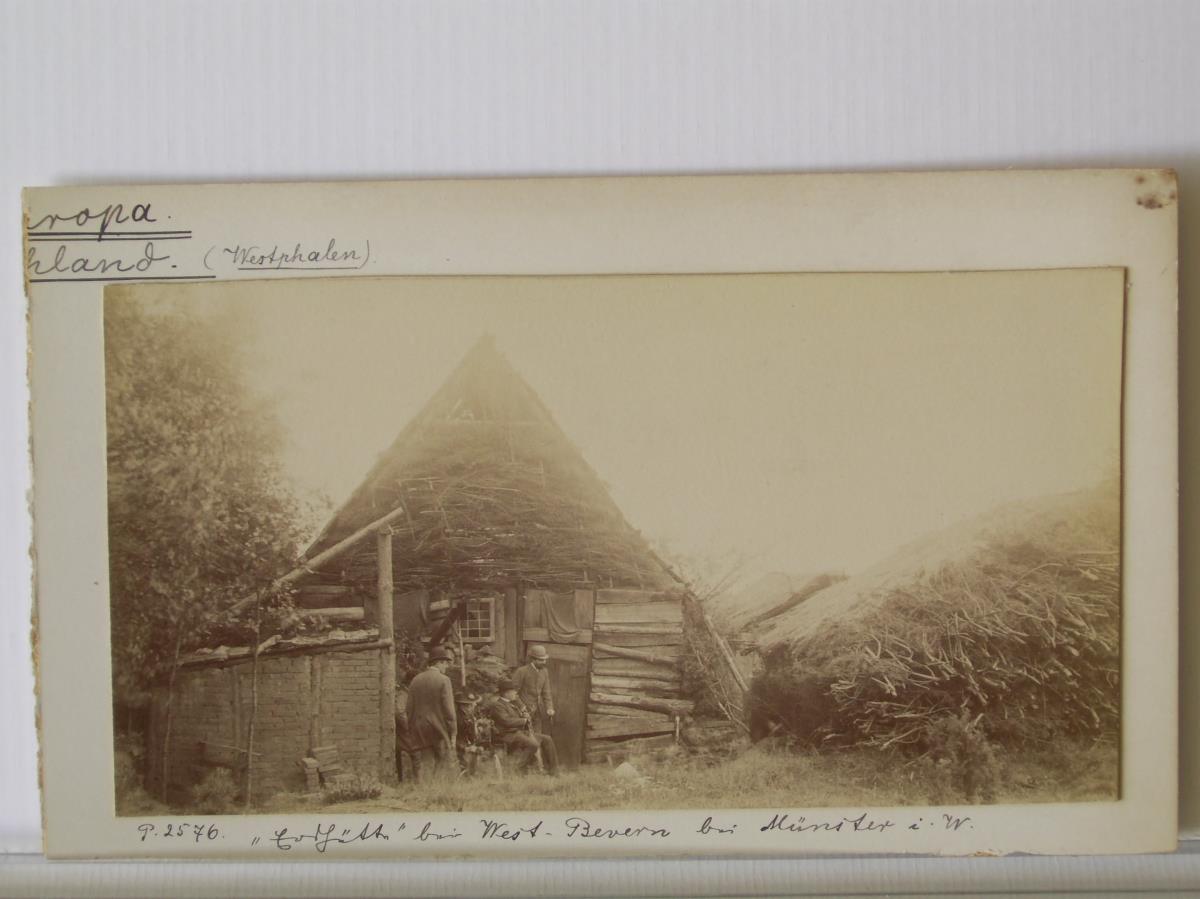 uropa.
hland. (Westphalen)
P. 2576. „Erdhütte" bei West-Bevern bei Münster i. W.